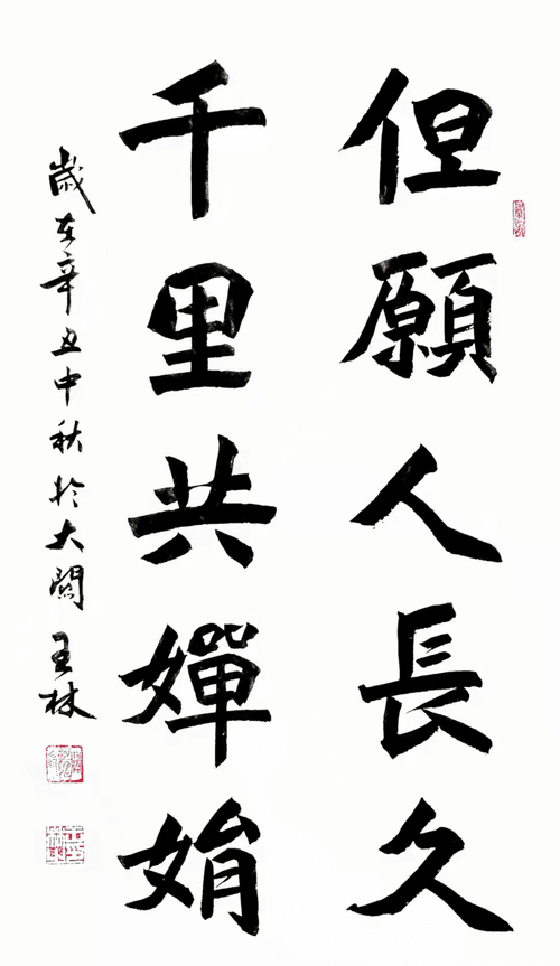 但願人長久
千里共嬋娟
歲在辛丑中秋於大關王林